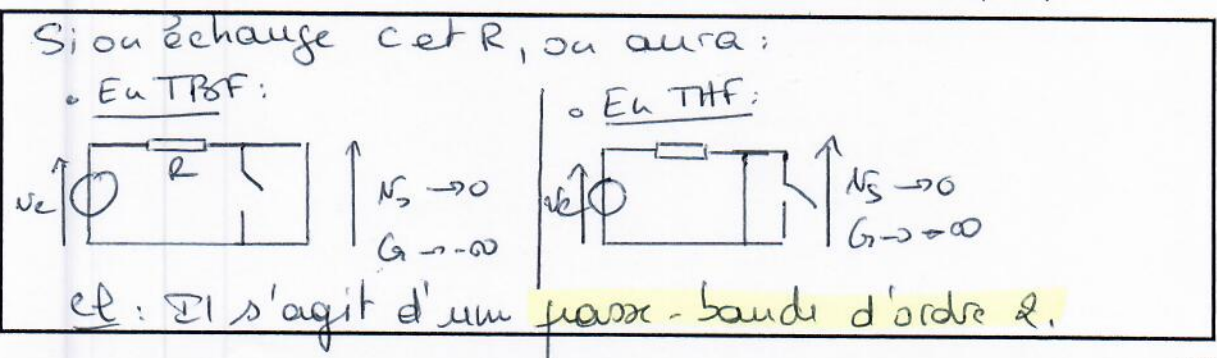 Si on échange C et R, on aura :
• En TBF :
R
ve
vs → 0
G → -∞
• En THF :
ve
vs → 0
G → -∞
Cl : Il s'agit d'un passe-bande d'ordre 2.